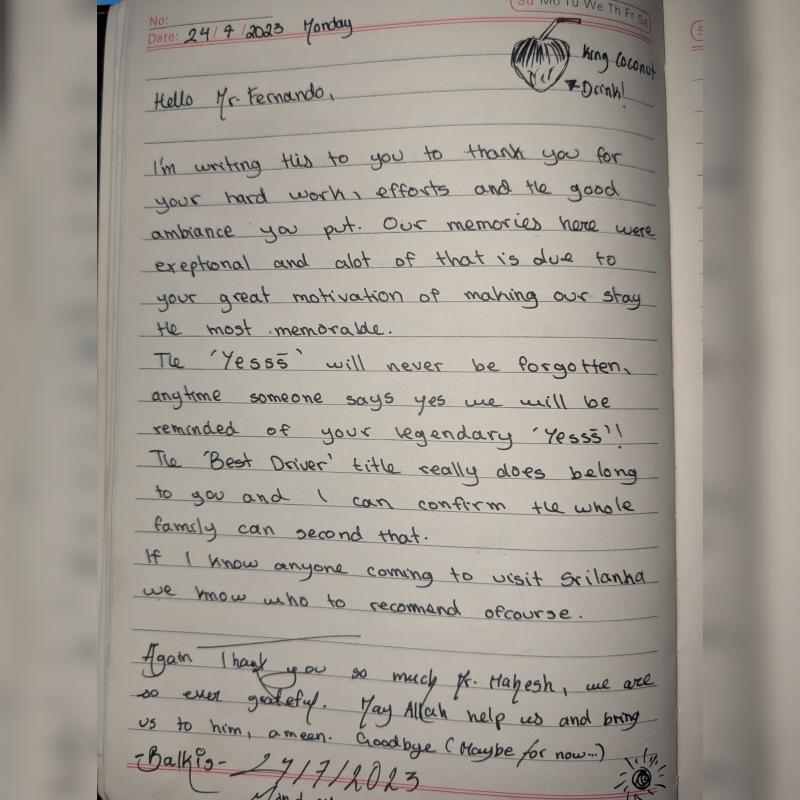 Su Mo Tu We Th Fr Sa
No:
Date: 24/7/2023 Monday
King Coconut
Drink!
Hello Mr. Fernando,
I'm writing this to you to thank you for
your hard work, efforts and the good
ambiance you put. Our memories here were
exeptional and alot of that is due to
your great motivation of making our stay
the most memorable.
The 'Yesss' will never be forgotten,
anytime someone says yes we will be
reminded of your legendary 'Yesss'!
The 'Best Driver' title really does belong
to you and I can confirm the whole
family can second that.
If I know anyone coming to visit Srilanka
we know who to recomend ofcourse.
Again Thank you so much Mr. Mahesh, we are
so ever grateful. May Allah help us and bring
us to him, ameen. Goodbye (Maybe for now...)
-Balkis- 24/7/2023